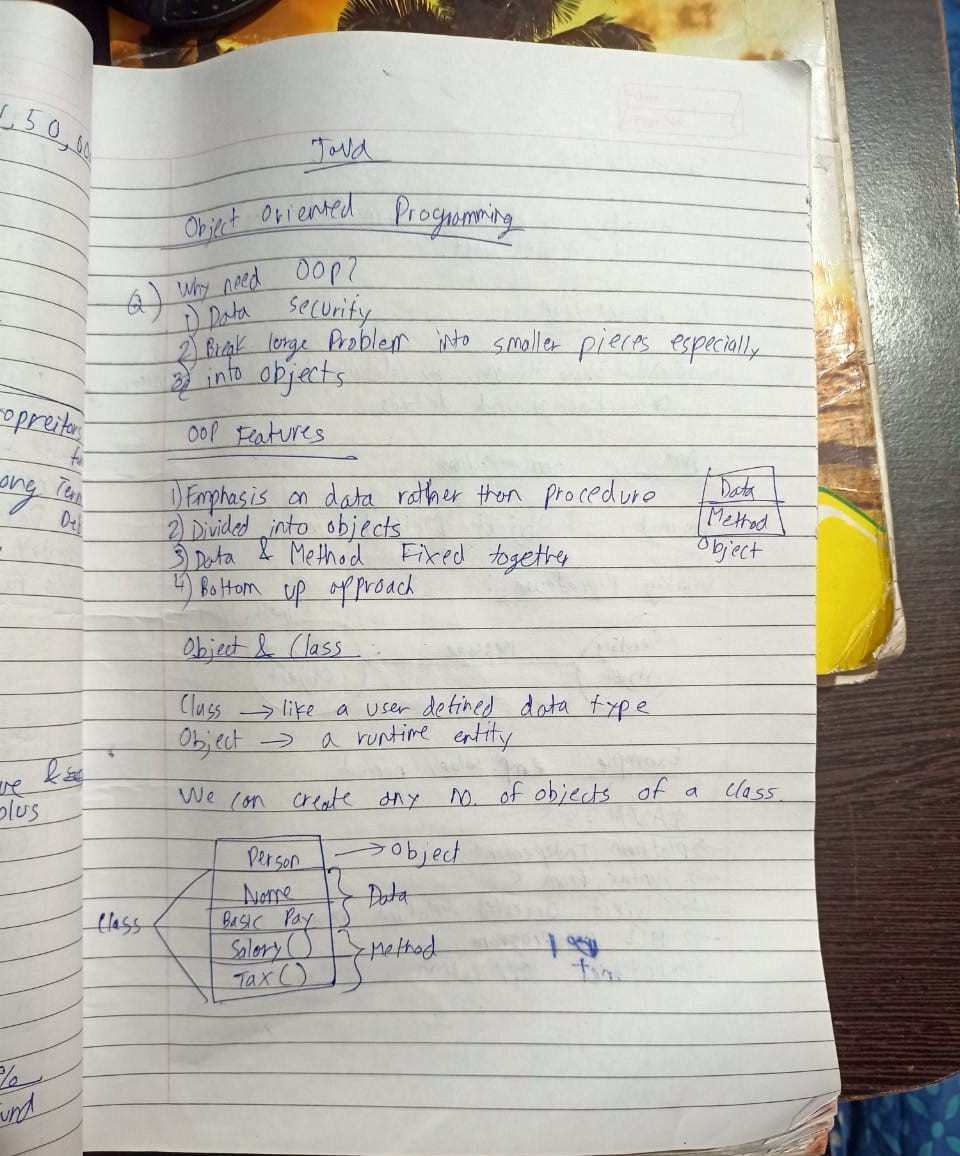 1,50,00
Java
Object Oriented Programming
Q) Why need OOP?
1) Data security
2) Break large Problem into smaller pieces especially
3) into objects
opreitors
OOP Features
ong Term
1) Emphasis on data rather then procedure
2) Divided into objects
3) Data & Method Fixed together
4) Bottom up approach
Data
Method
Object
Object & Class
Class → like a user defined data type
Object → a runtime entity
ve &
plus
We can create any No. of objects of a class.
Person → Object
Name
Basic Pay
Data
Class
Salary()
Tax()
Method
%
und